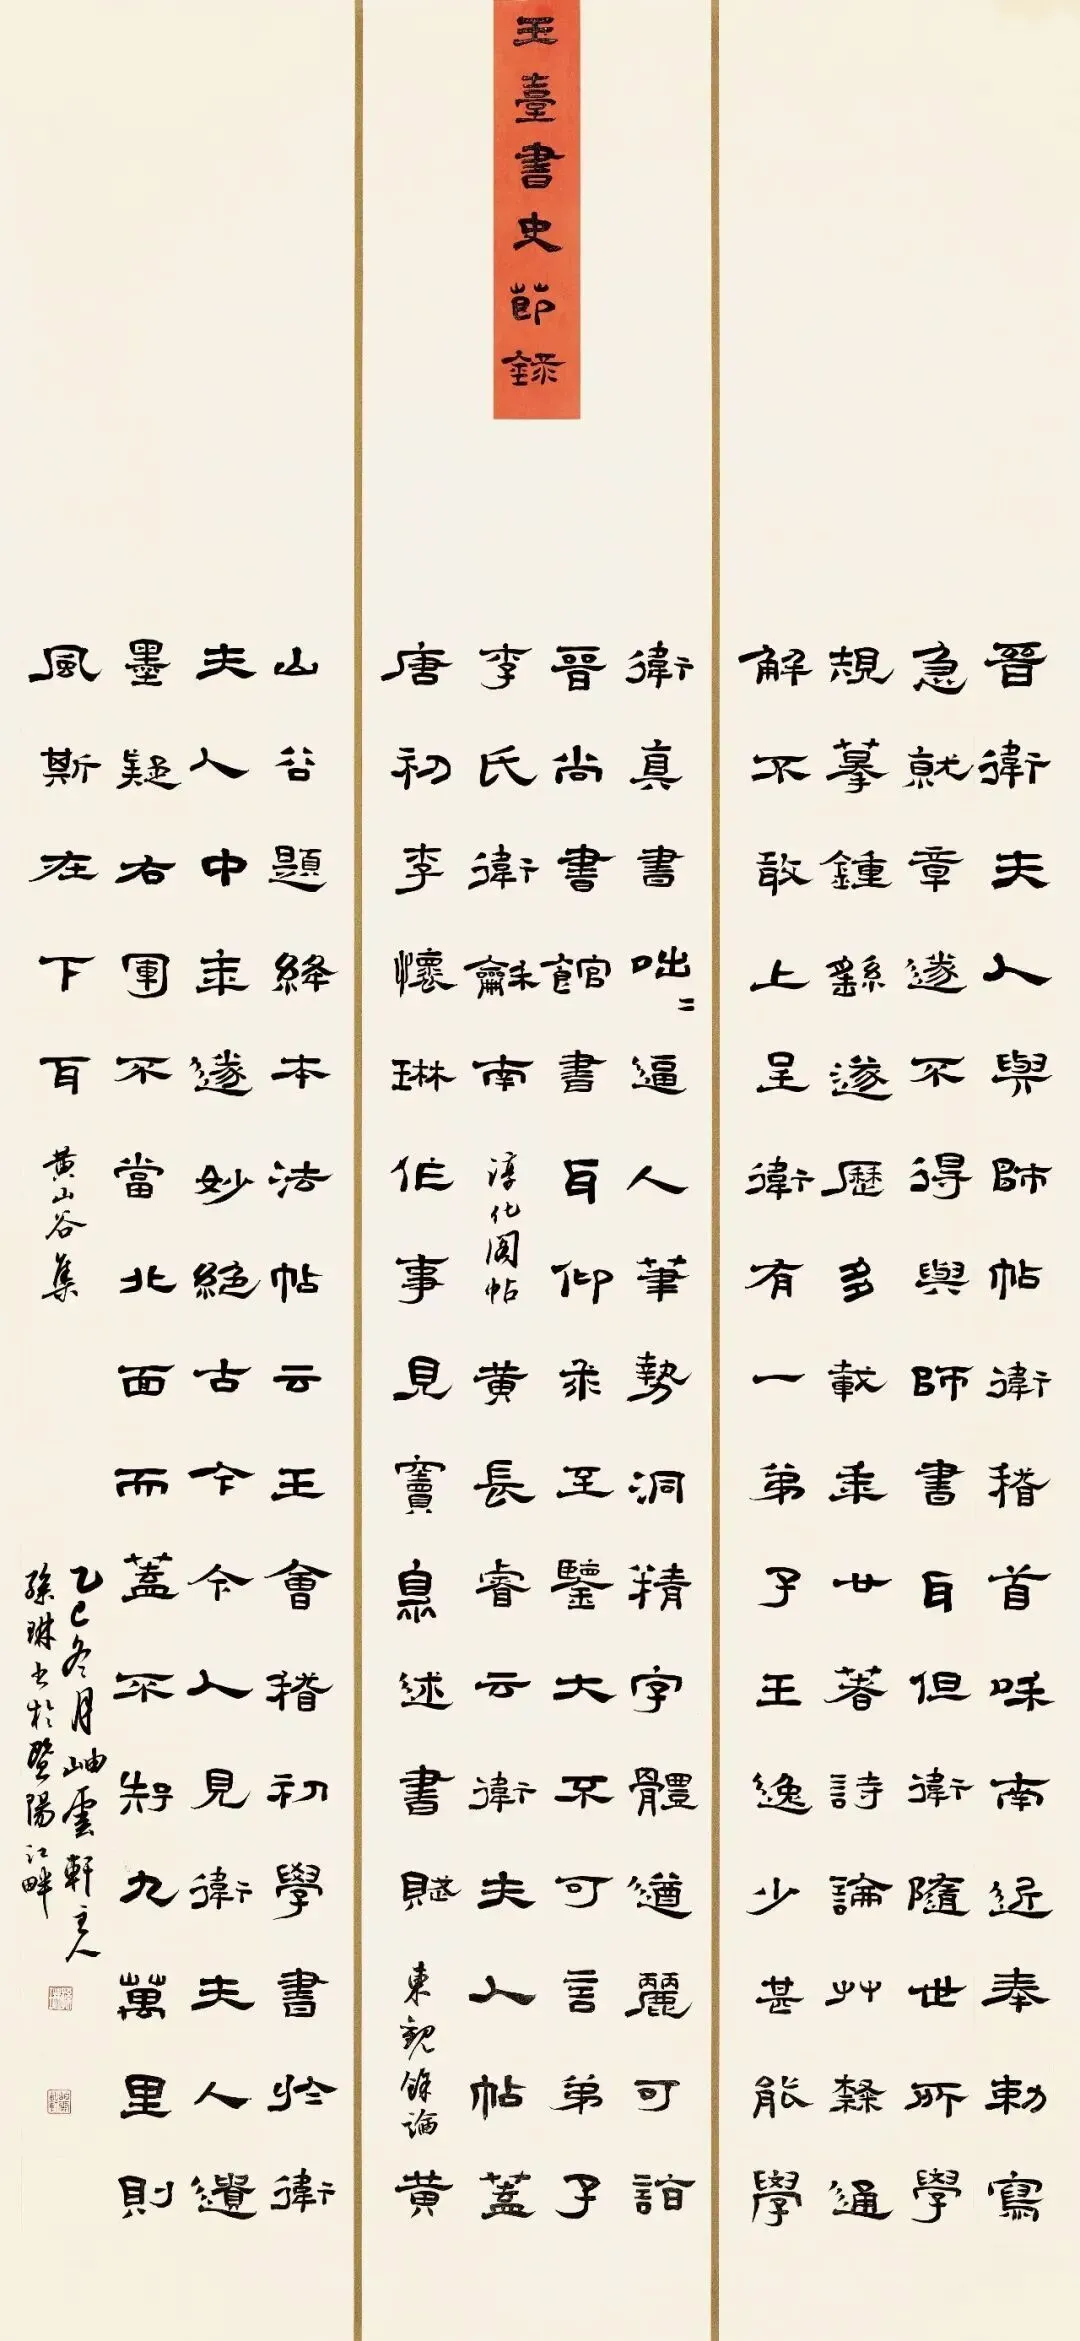 玉臺書史節録
晉衛夫人與師帖衛稽首和南近奉勅寫
急就章遂不得與師書耳但衛隨世所學
規摹鍾繇遂歷多載年廿著詩論艸隸通
解不敢上呈衛有一弟子王逸少甚能學
衛真書咄二逼人筆勢洞精字體遒麗可詣
晉尚書館書耳仰乖至鑒大不可言弟子
李氏衛龢南
淳化閣帖
黄長睿云衛夫人帖蓋
唐初李懷琳作事見竇臮述書賦
東觀餘論
黄
山谷題絳本法帖云王會稽初學書於衛
夫人中年遂妙絕古今今人見衛夫人遺
墨疑右軍不當北面而蓋不知九萬里則
風斯在下耳
黄山谷集
乙巳冬月岫雲軒主人
孫琳書於暨陽江畔